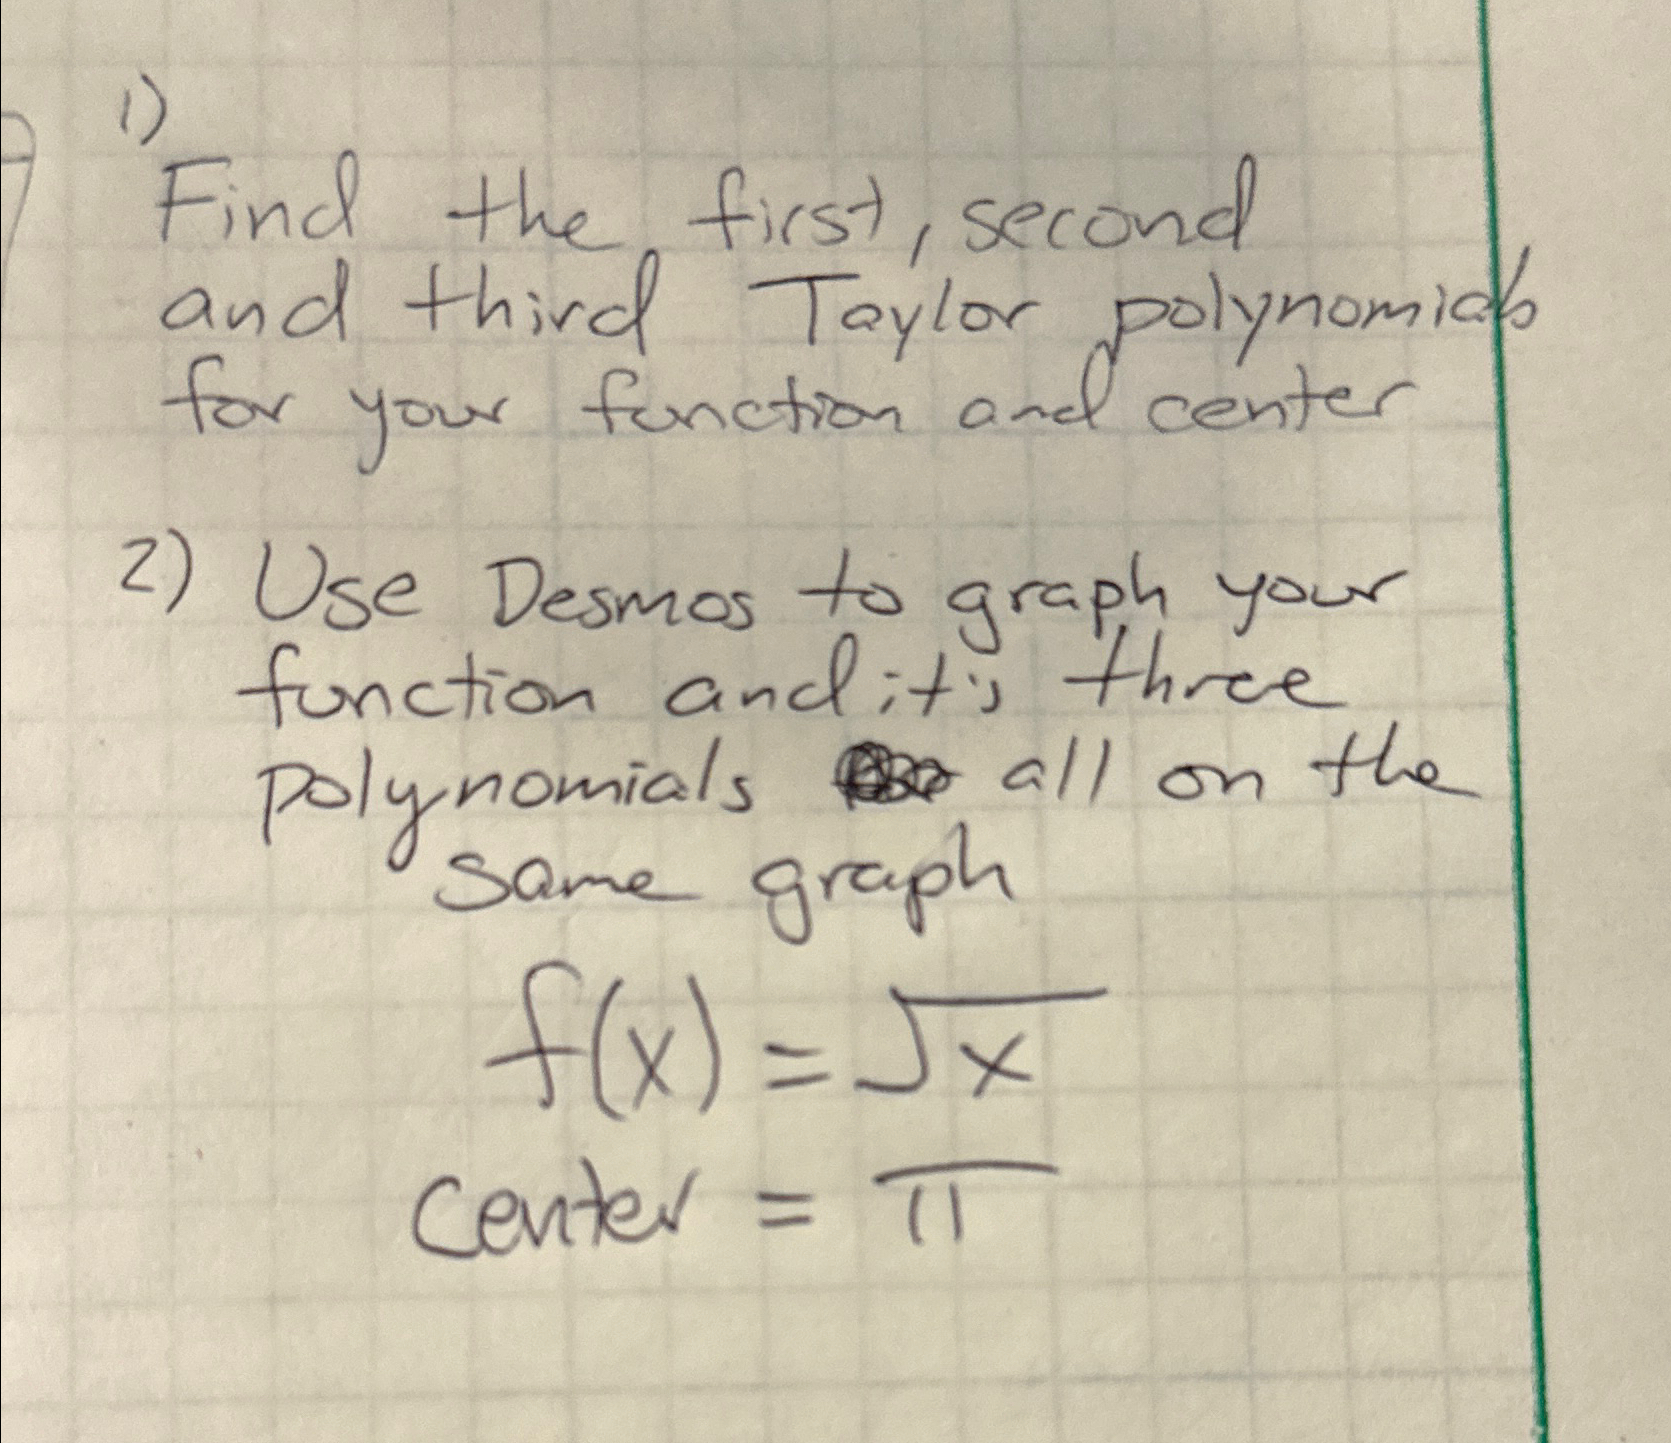 1)
Find the first, second
and third Taylor polynomials
for your function and center
2) Use Desmos to graph your
function and it's three
polynomials all on the
same graph
f(x) = √x
center = π